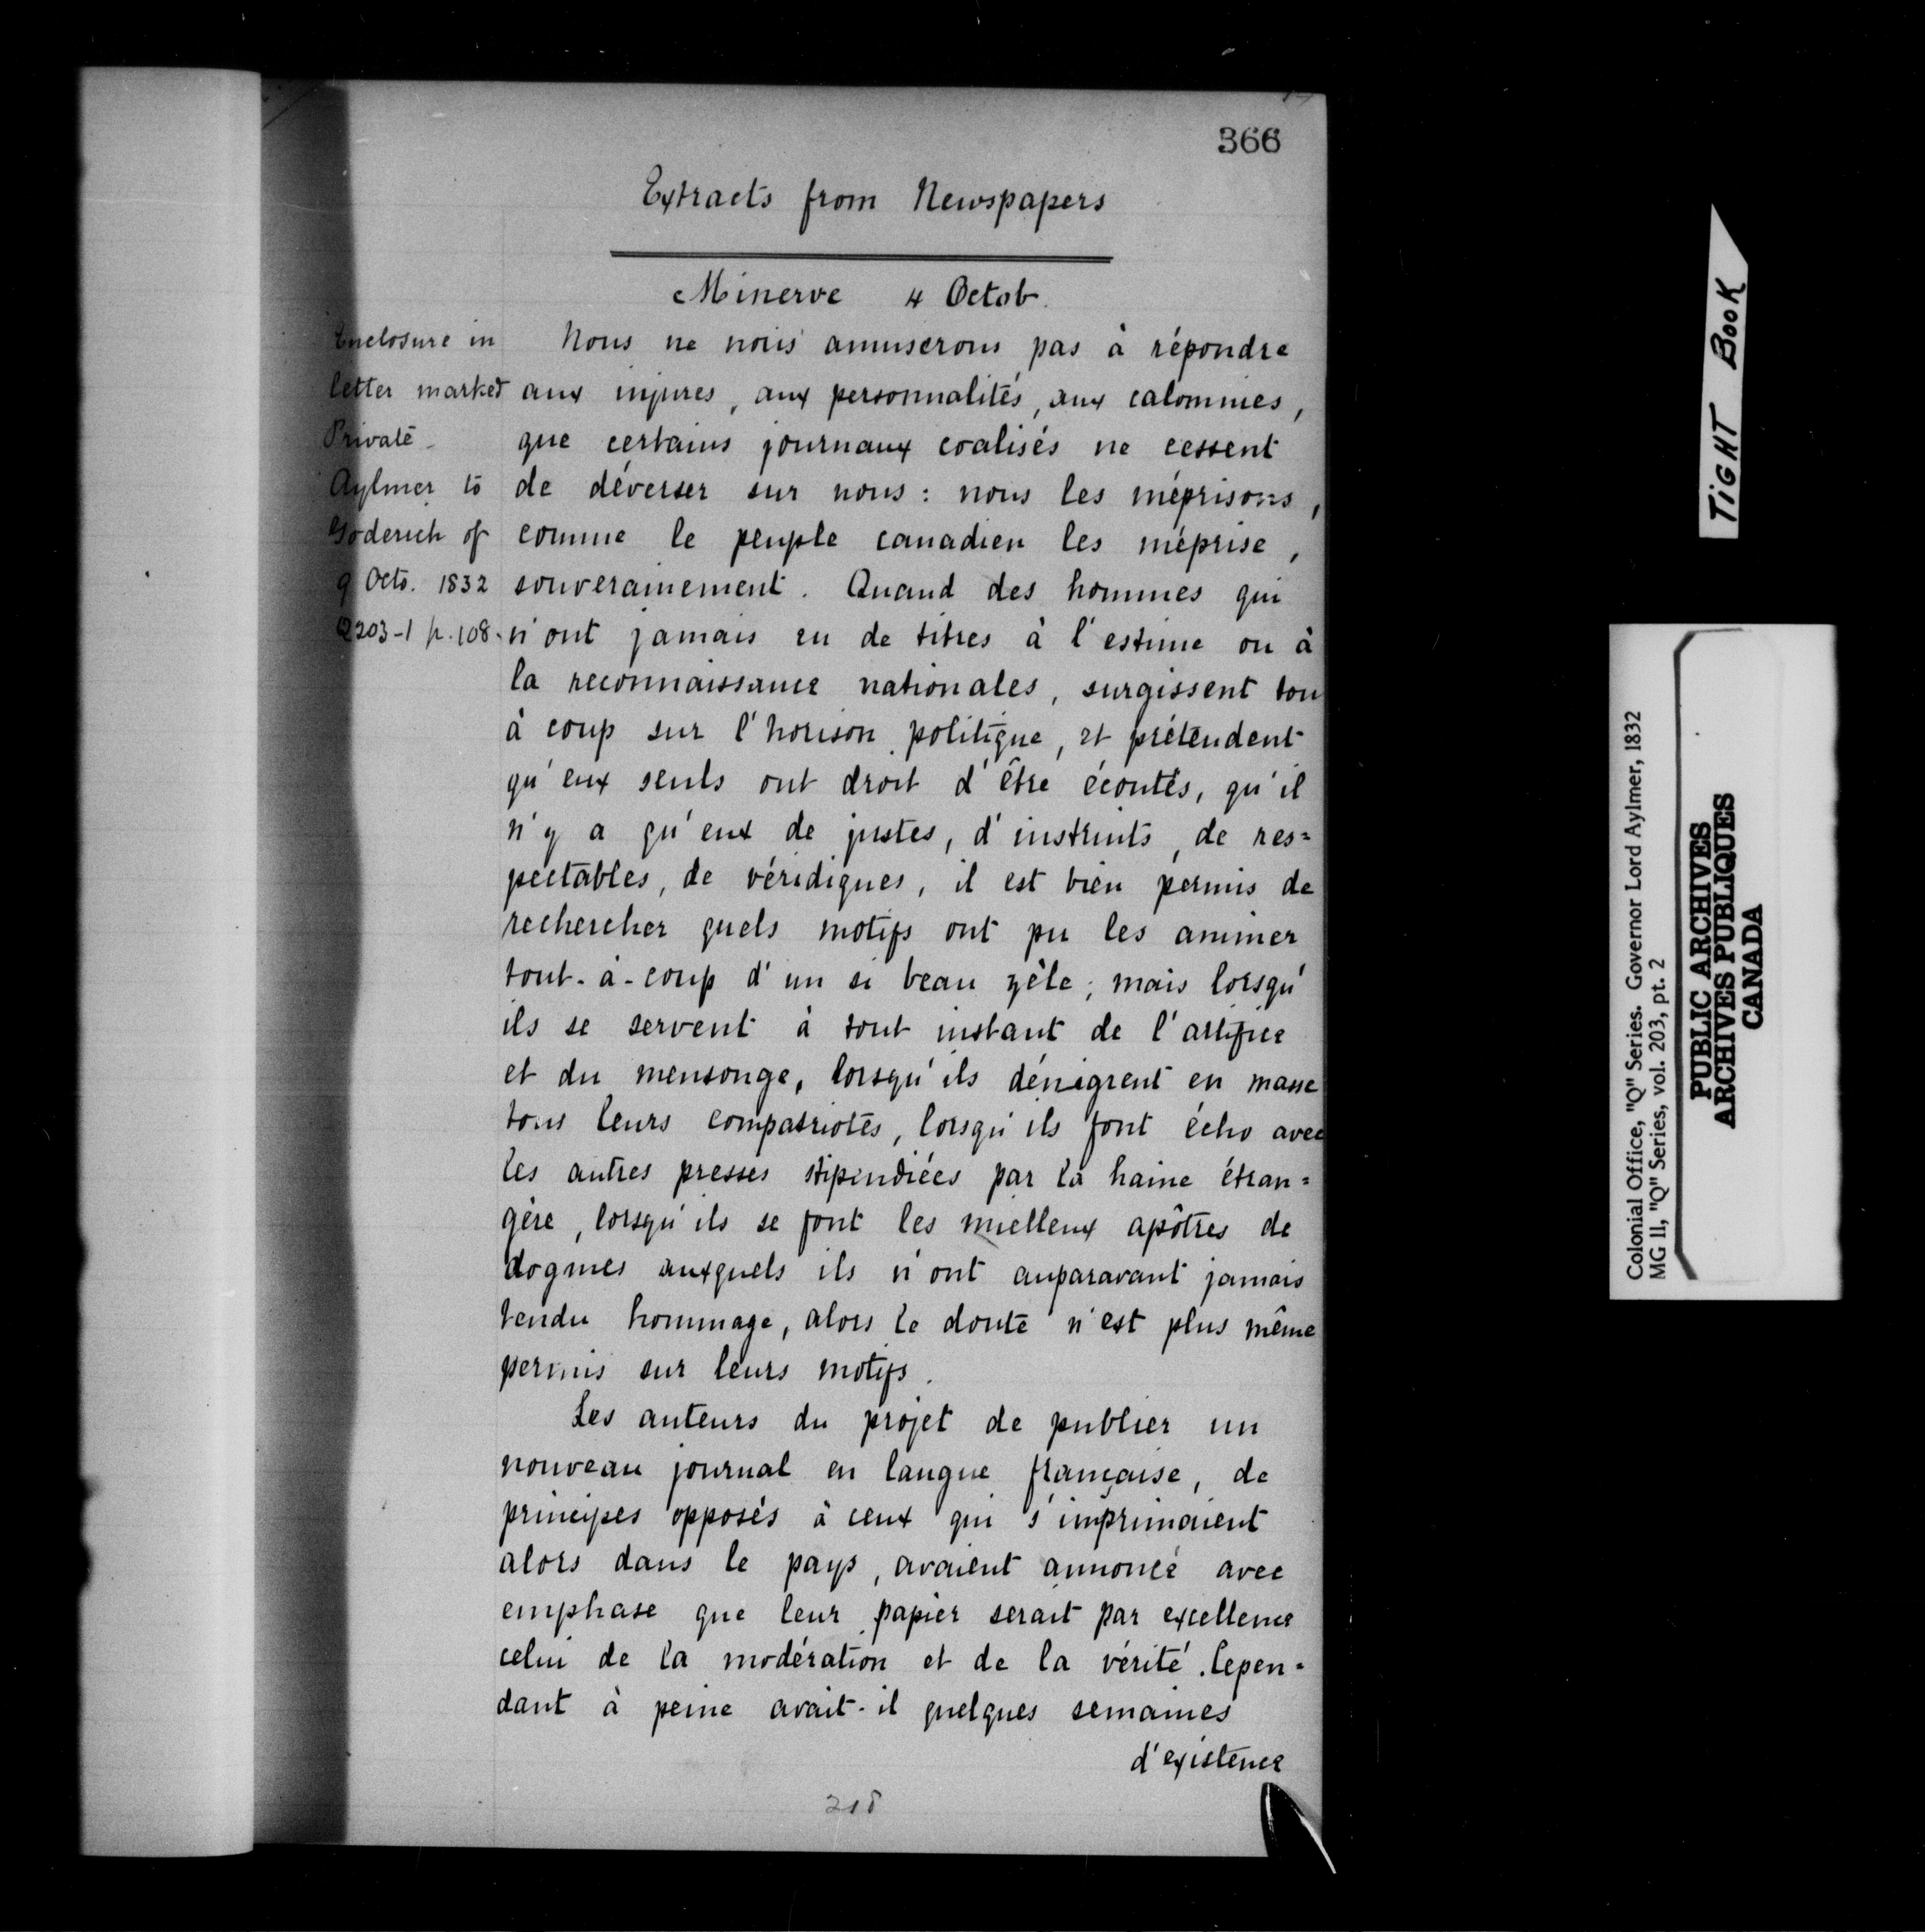 366
Extracts from Newspapers
Minerve 4 Octob.
Enclosure in
letter marked
Private -
Aylmer to
Goderich of
9 Octo. 1832
Q203-1 p. 108.
Nous ne nous amuserons pas à répondre
aux injures, aux personnalités, aux calomnies,
que certains journaux coalisés ne cessent
de déverser sur nous : nous les méprisons,
comme le peuple canadien les méprise,
souverainement. Quand des hommes qui
n'ont jamais eu de titres à l'estime ou à
la reconnaissance nationales, surgissent tou
à coup sur l'horison politique, et prétendent
qu'eux seuls ont droit d'être écoutés, qu'il
n'y a qu'eux de justes, d'instruits, de res=
pectables, de véridiques, il est bien permis de
rechercher quels motifs ont pu les animer
tout-à-coup d'un si beau zèle; mais lorsqu'
ils se servent à tout instant de l'artifice
et du mensonge, lorsqu'ils dénigrent en masse
tous leurs compatriotes, lorsqu'ils font écho avec
les autres presses stipendiées par la haine étran=
gère, lorsqu'ils se font les mielleux apôtres de
dogmes auxquels ils n'ont auparavant jamais
rendu hommage, alors le doute n'est plus même
permis sur leurs motifs.
Les auteurs du projet de publier un
nouveau journal en langue française, de
principes opposés à ceux qui s'imprimaient
alors dans le pays, avaient annoncé avec
emphase que leur papier serait par excellence
celui de la modération et de la vérité. Cepen=
dant à peine avait-il quelques semaines
d'existence
218
TIGHT BOOK
Colonial Office, "Q" Series. Governor Lord Aylmer, 1832
MG 11, "Q" Series, vol. 203, pt. 2
PUBLIC ARCHIVES
ARCHIVES PUBLIQUES
CANADA